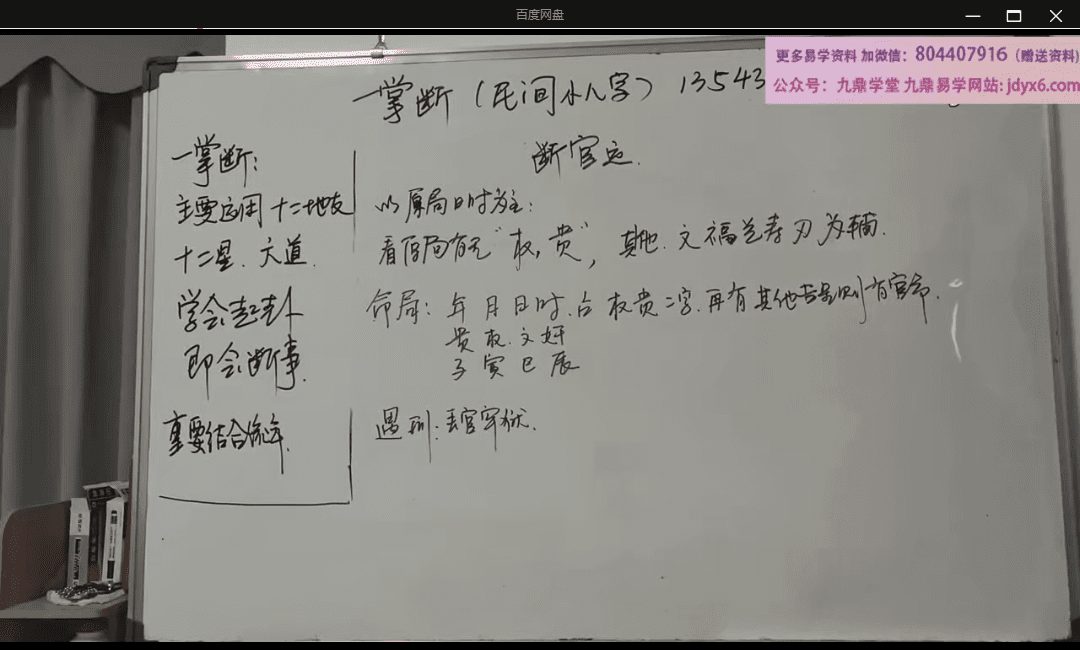 百度网盘
更多易学资料 加微信：804407916（赠送资料）
公众号：九鼎学堂 九鼎易学网站：jdyx6.com
一掌断（民间小八字）13543
一掌断：
主要应用 十二地支
十二星．六道．
学会起卦
即会断事．
重要结合流年．
断官运．
以原局日时为主：
看原局有无“权，贵”，其他．文福艺寿刃为辅．
命局：年月日时．占权贵二字．再有其他吉星则有官命．
贵权．文奸
子寅巳辰
遇刑：丢官牢狱．